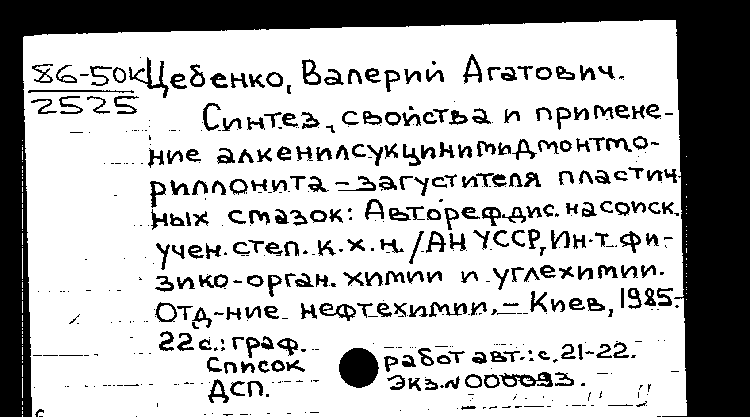 86-50к Цебенко, Валерий Агатович.
2525
Синтез, свойства и примене-
ние алкенилсукцинимидмонтмо-
риллонита – загустителя пластич-
ных смазок: Автореф. дис. на соиск.
учен. степ. к.х.н. / АН УССР, Ин-т фи-
зико-орган. химии и углехимии.
Отд-ние нефтехимии. – Киев, 1985.-
22 с.: граф.
Список работ авт.: с. 21-22.
ДСП. Экз. N 000093.